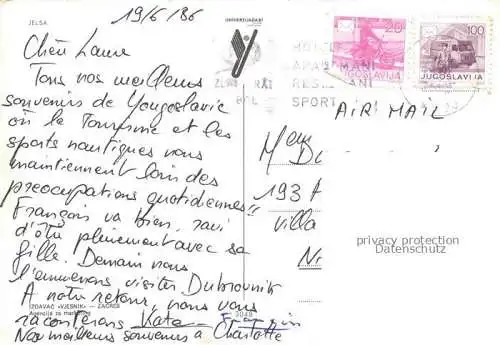 JELSA
19/6/86
UNIVERZIJADA '87
Chère Laure
Tous nos meilleurs
souvenirs de Yougoslavie
où le Tourisme et les
sports nautiques nous
maintiennent loin des
préoccupations quotidiennes!!
François va bien, ravi
d'être pleinement avec sa
fille. Demain nous
l'emmenons visiter Dubrovnik
A notre retour, nous vous
raconterons Kate François
Nos meilleurs souvenirs à Charlotte
IZDAVAČ «VJESNIK» — ZAGREB
Agencija za marketing
3048
20
JUGOSLAVIJA
100
JUGOSLAVIJA
SPORT
AIR MAIL
Du
193 A
villa
privacy protection
Datenschutz